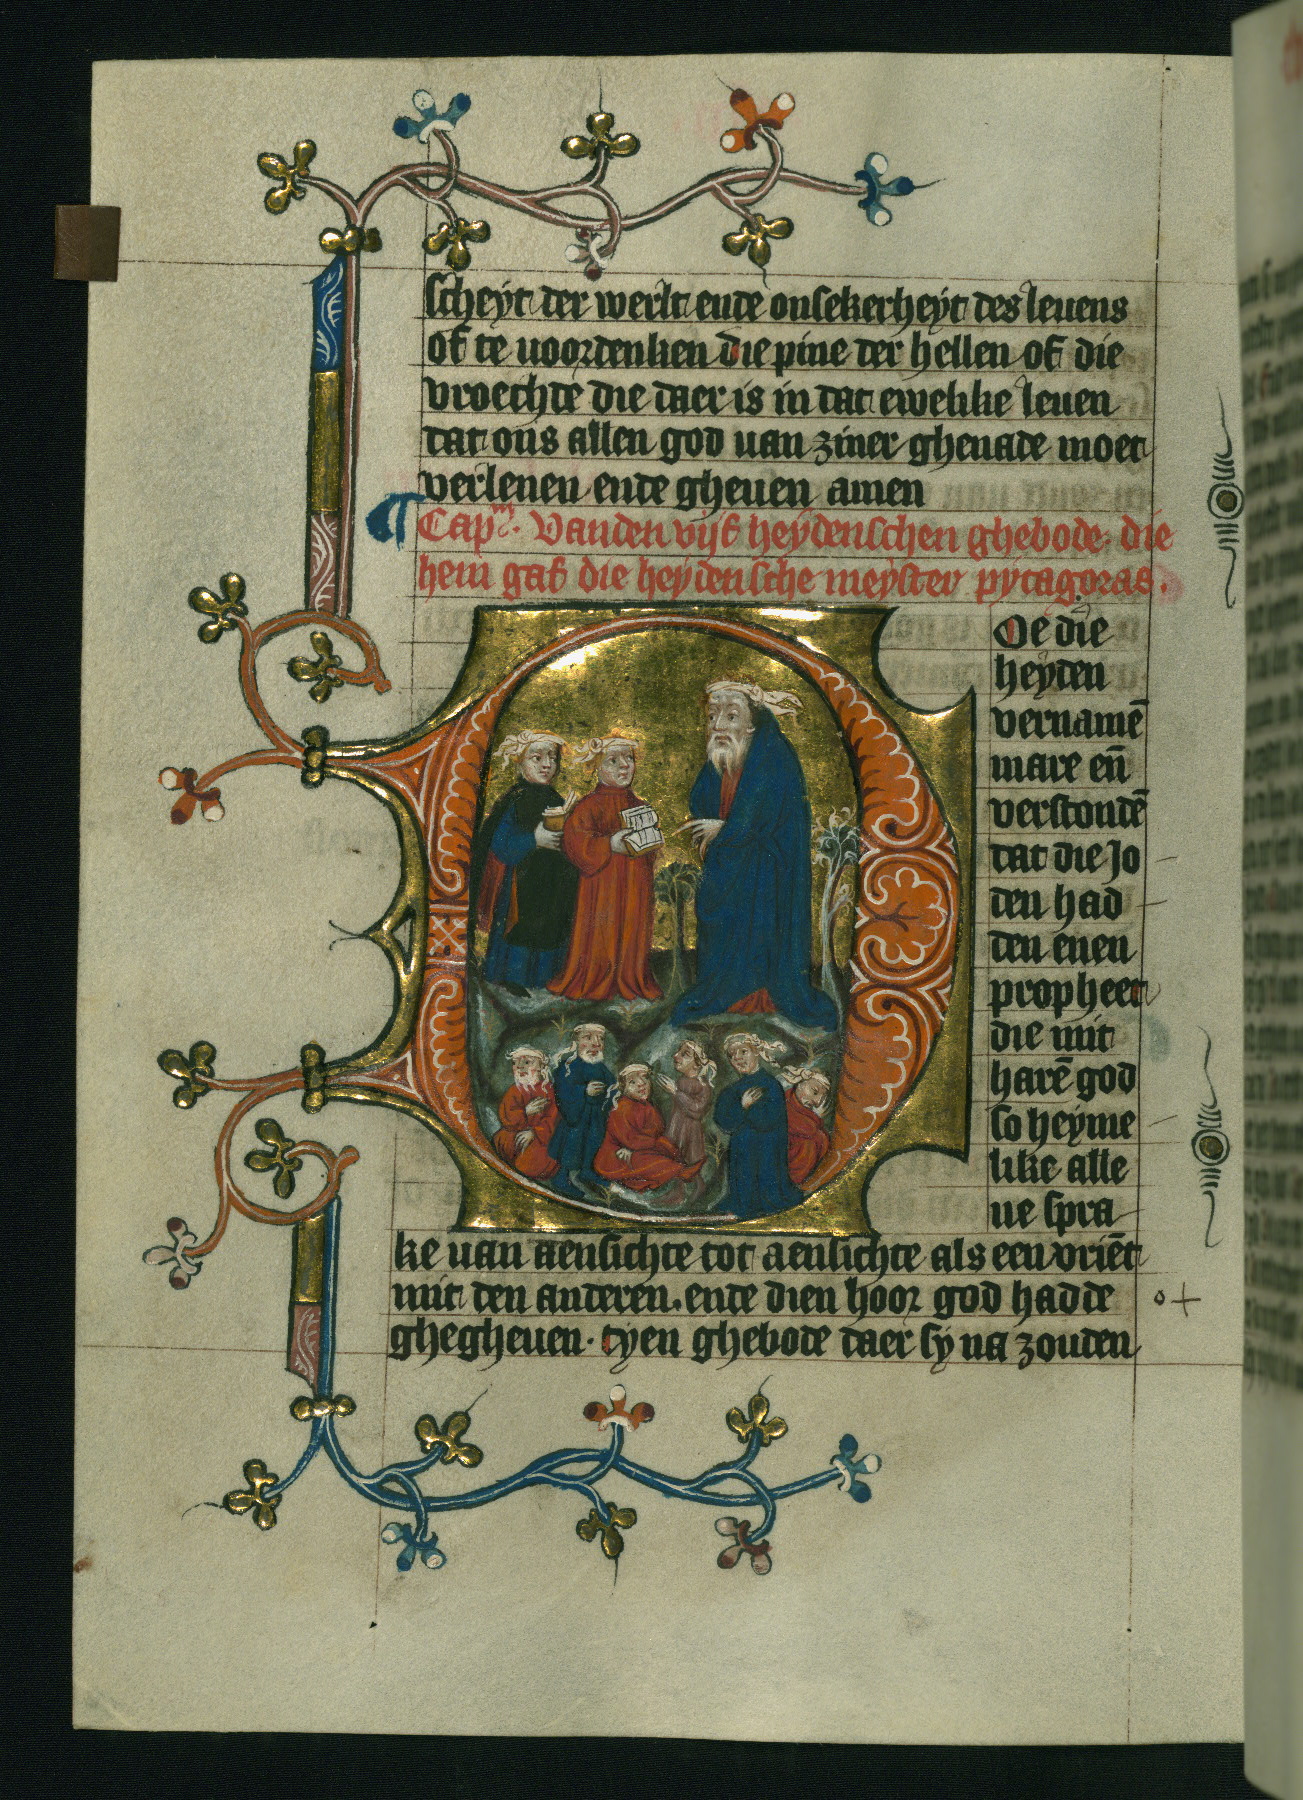 scheyt der werlt ende onsekerheyt des leuens
of te uoordenken die pine der hellen of die
vroechde die daer is in dat ewelike leuen
dat ons allen god uan ziner ghenade moet
verlenen ende gheuen amen
¶ Capm. Vanden vijf heydenschen ghebode. die
hem gaf die heydensche meyster pytagoras.
Doe die
heyden
vernamē
mare eñ
verstondē
dat die Jo
den had
den enen
propheet
die mit
harē god
so heyme
like alle
ne spra
ke uan aensichte tot aensichte als een vriēt
mit den anderen. ende dien hoor god hadde
ghegheuen. tyen ghebode daer sy na zouden